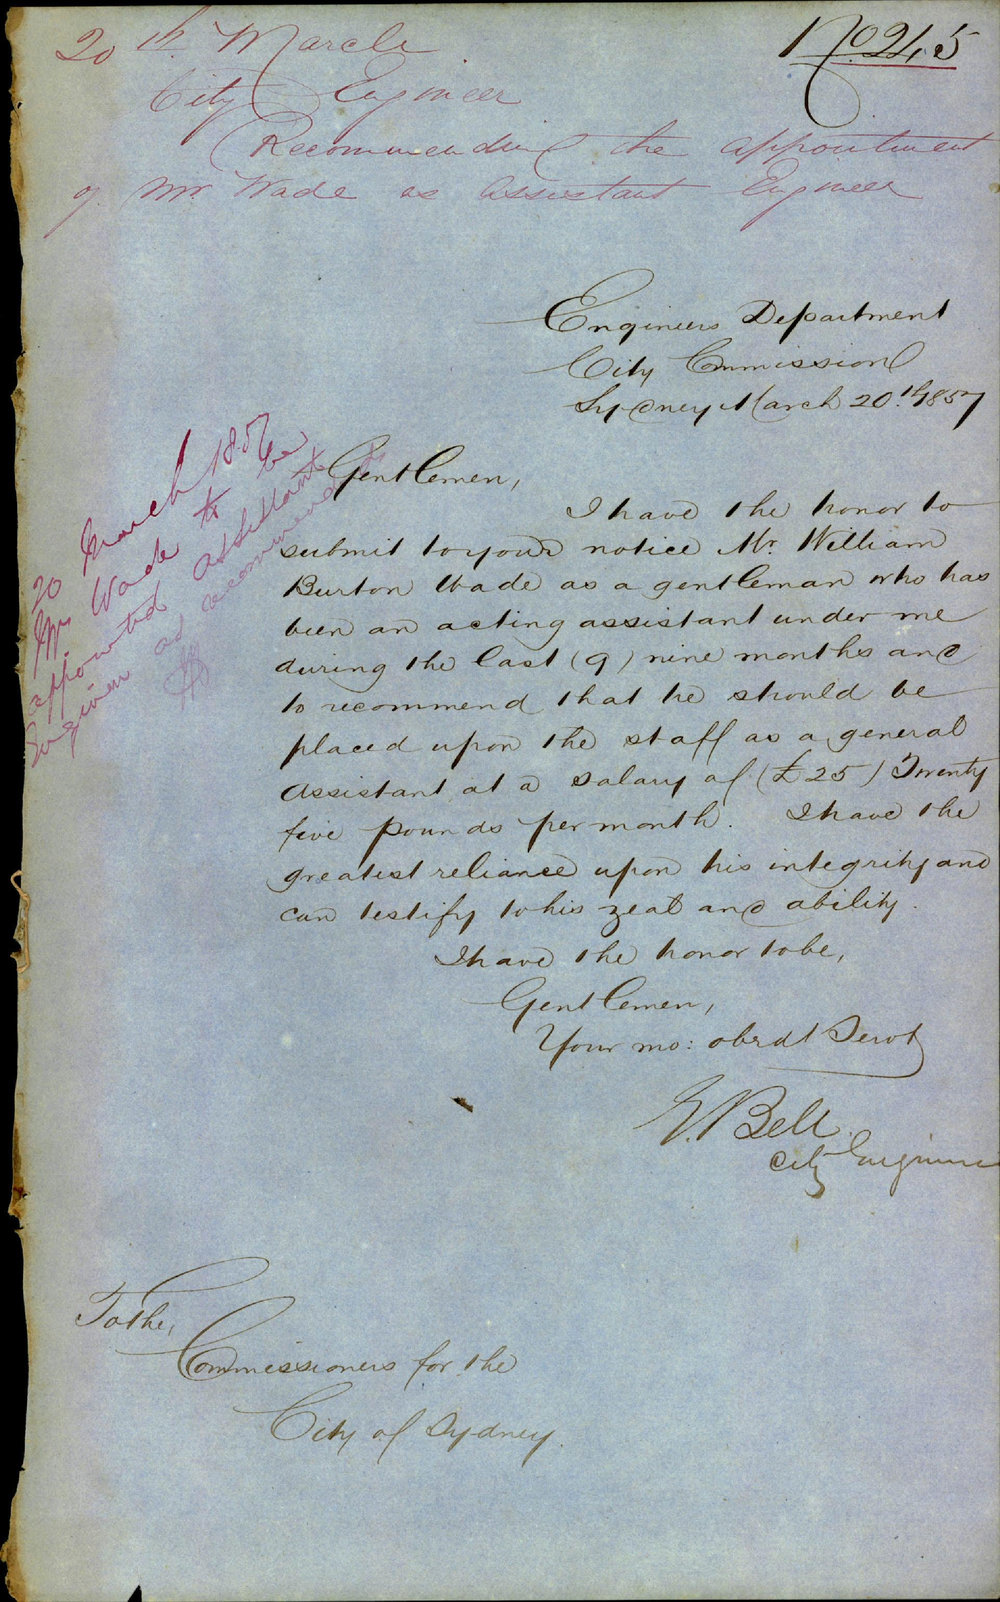 No. 245
20th March
City Engineer
Recommending the appointment
of Mr Wade as Assistant Engineer
Engineers Department
City Commission
Sydney March 20th 1857
20 March 1857
Mr Wade to be
appointed assistant
Engineer as recommended
Gentlemen,
I have the honor to
submit to your notice Mr. William
Burton Wade as a gentleman who has
been an acting assistant under me
during the last (9) nine months and
to recommend that he should be
placed upon the staff as a general
Assistant at a salary of (£25) Twenty
five pounds per month. I have the
greatest reliance upon his integrity and
can testify to his zeal and ability.
I have the honor to be,
Gentlemen,
Your mo: obedt Servt
E. Bell.
City Engineer
To the,
Commissioners for the
City of Sydney.